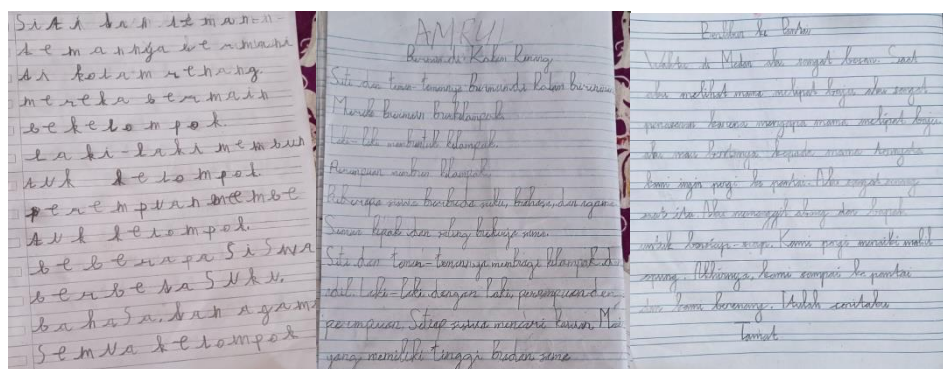 Siti dan teman-
temannya bermain
di kolam renang
mereka bermain
bekelompok.
Laki-laki membun
tuk kelompok.
perempuan membe
tuk kelompok.
beberapa siswa
berbeda suku,
bahasa, dan agama
semua kelompok
AMRUL
Siti dan teman-temannya di kolam
Merek
Laki-laki membuntuk kelompok.
Perempuan kelompok
siswa suku, bahasa, dan agama
dan saling
Siti dan teman-temannya membagi kelompok
adil. Laki-laki dengan laki, perempuan den
perempuan. Setiap siswa mencari kawan
yang memiliki tinggi badan sama
ke Pantai
Waktu di Medan aku sangat bosan. Saat
aku melihat mama melipat baju aku sangat
penasaran karena mengapa mama melipat baju
aku mau bertanya kepada mama ternyata
kami ingin pergi ke pantai. Aku sangat senang
saat itu. Aku memanggil abang dan kakak
untuk Kami pergi menaiki mobil
Akhirnya, kami sampai ke pantai
dan kami berenang. Itulah ceritaku
Tamat